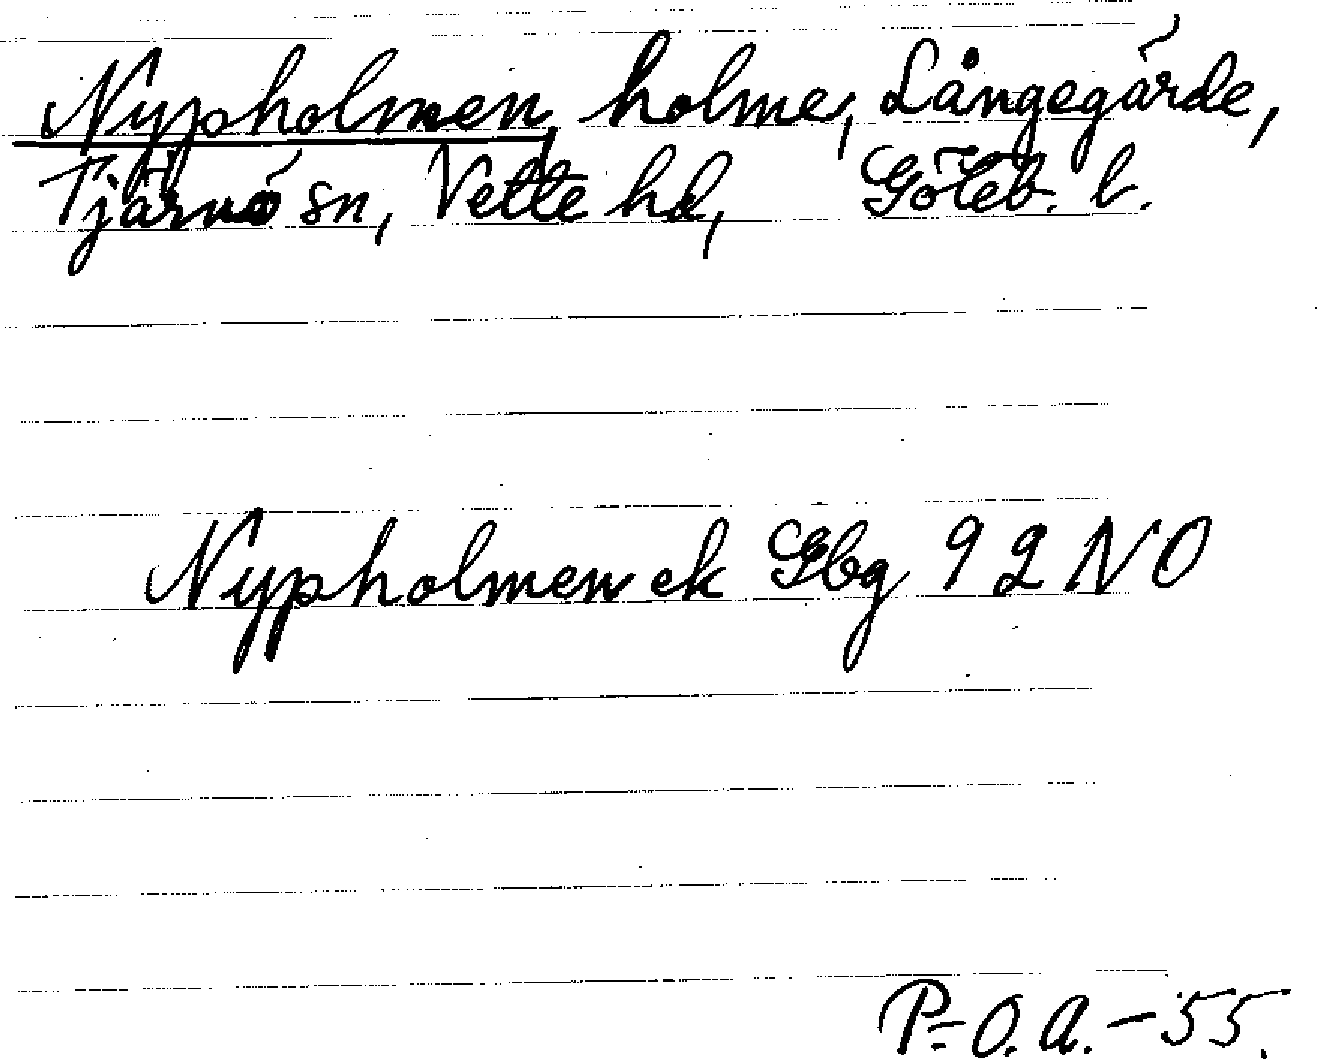 Nypholmen, holme, Långegärde,
Tjärnö sn, Vette hd, Göteb. l.
Nypholmen ek Gbg 9 2 NO
P-O.A.-55.